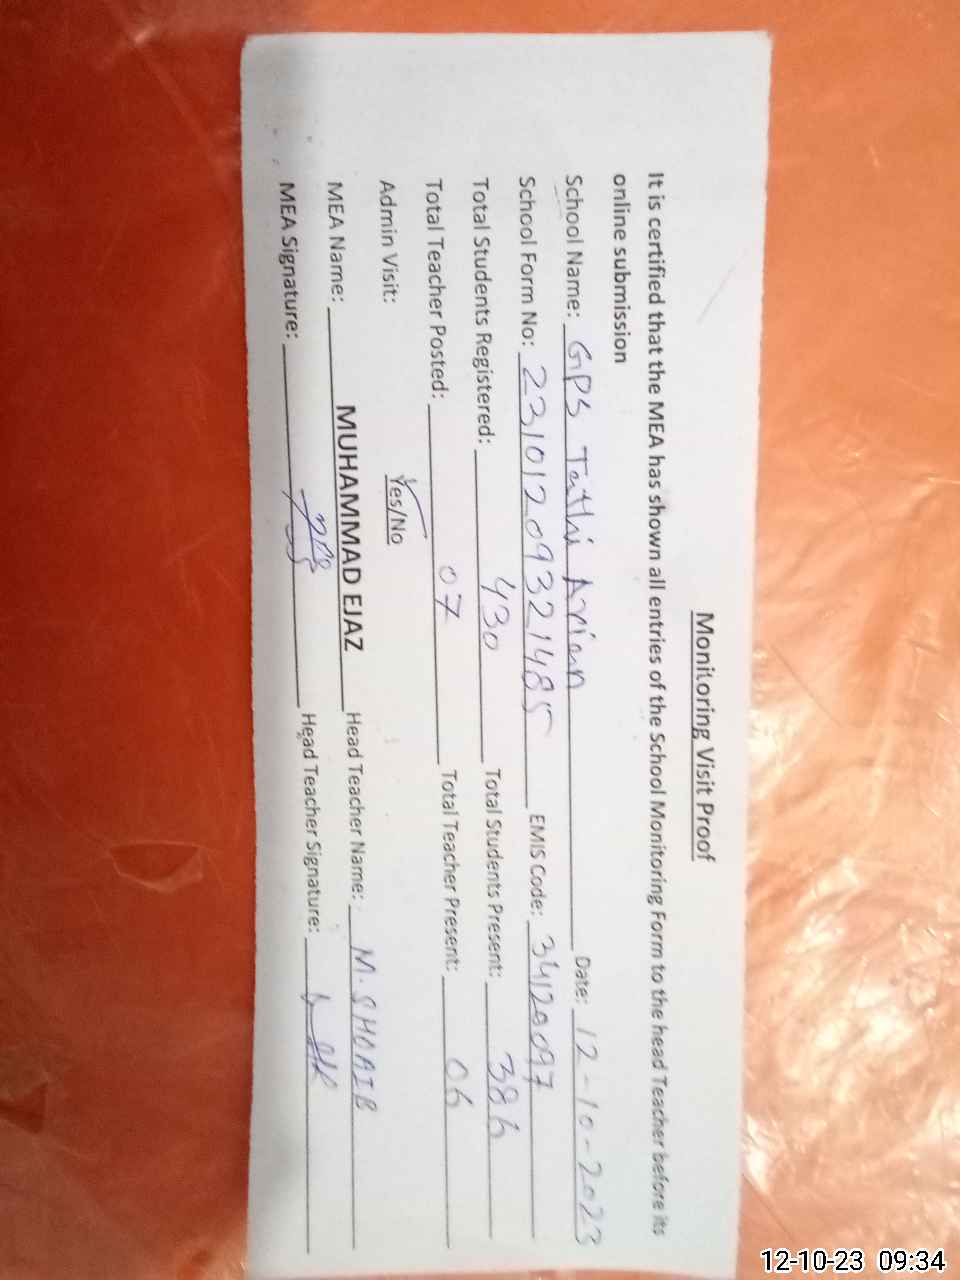 Monitoring Visit Proof
It is certified that the MEA has shown all entries of the School Monitoring Form to the head Teacher before its
online submission
School Name: GPS Tathi Arian Date: 12-10-2023
School Form No: 23101209321485 EMIS Code: 34120097
Total Students Registered: 430 Total Students Present: 386
Total Teacher Posted: 07 Total Teacher Present: 06
Admin Visit: Yes/No
MEA Name: MUHAMMAD EJAZ Head Teacher Name: M. SHOAIB
MEA Signature: Head Teacher Signature:
12-10-23 09:34